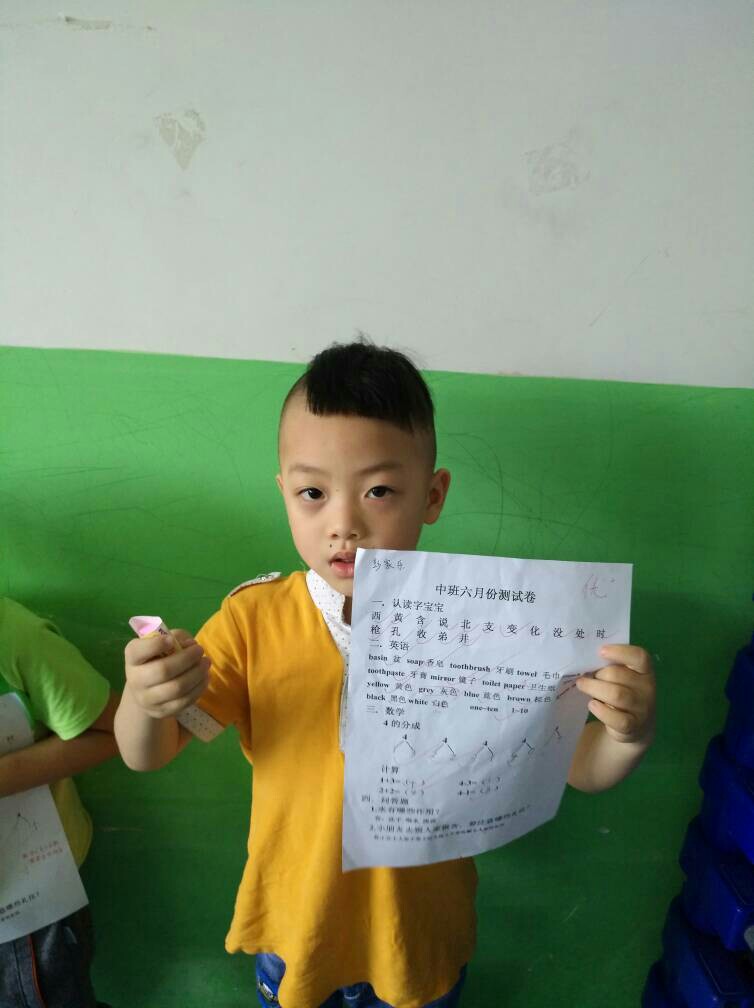 彭家乐
优
中班六月份测试卷
一．认读字宝宝
西 黄 含 说 北 支 变 化 没 处 时
枪 孔 收 弟 并
二．英语
basin 盆 soap 香皂 toothbrush 牙刷 towel 毛巾
toothpaste 牙膏 mirror 镜子 toilet paper 卫生纸
yellow 黄色 grey 灰色 blue 蓝色 brown 棕色
black 黑色 white 白色 one–ten 1–10
三．数学
4 的分成
4 4 4 4 4
计算
1+3=( ) 4-3=( )
2+2=( ) 4-1=( )
四．问答题
1.水有哪些作用？
2.小朋友去别人家做客，要注意哪些礼仪？